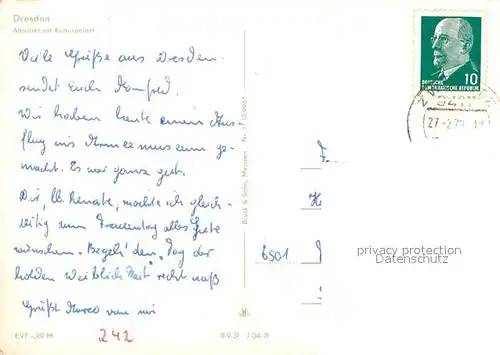 Dresden
Altmarkt mit Kulturpalast
Viele Grüße aus Dresden
sendet Euch Manfred.
Wir haben heute einen Aus-
flug ins Armeemuseum ge-
macht. Es war ganz gut.
Dir, lb. Renate, möchte ich gleich-
zeitig zum Frauentag alles Gute
wünschen. Begeh' den "Tag der
holden Weiblichkeit" recht naß
Grüßt Marco von mir
EVP -,20 M
242
Bruck & Sohn, Meissen
DEUTSCHE
DEMOKRATISCHE REPUBLIK
10
27.-2.
6501
privacy protection
Datenschutz